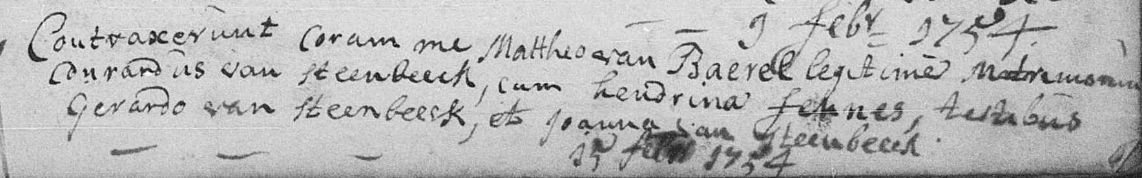 9 febr 1754.
Contraxerunt coram me Mattheo van Baerel legitimè Matrimoniū
Conrardus van steenbeeck, cum hendrina fennes, testibus
Gerardo van steenbeeck, et joanna van steenbeeck.
15 febr 1754